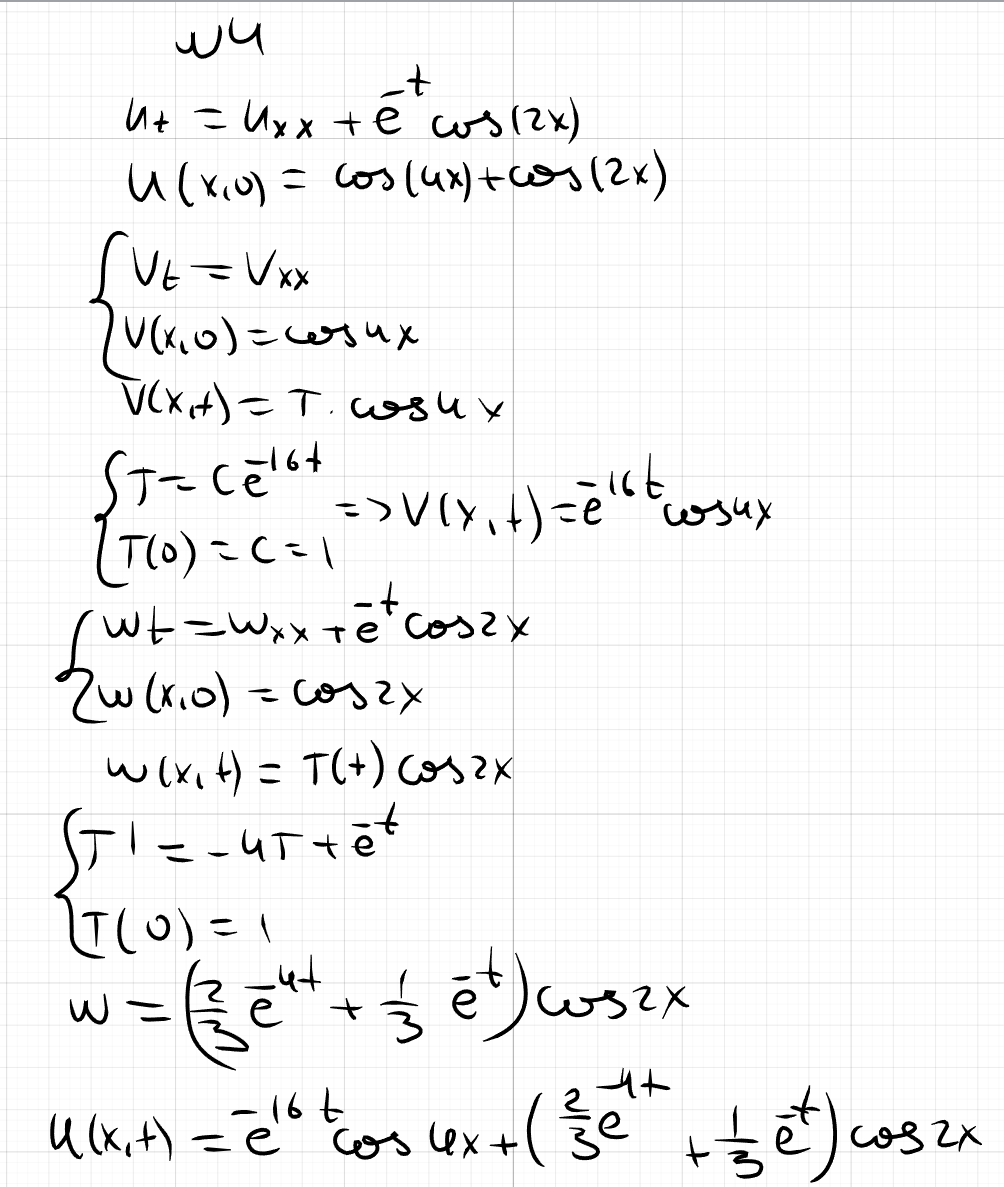 №4
u_t = u_xx + e^-t cos(2x)
u(x,0) = cos(4x)+cos(2x)
{ V_t = V_xx
V(x,0) = cos4x
V(x,t) = T · cos4x
{ T = C e^-16t
T(0) = C = 1 => V(x,t) = e^-16t cos4x
{ w_t = w_xx + e^-t cos2x
w(x,0) = cos2x
w(x,t) = T(t) cos2x
{ T' = -4T + e^-t
T(0) = 1
w = (2/3 e^-4t + 1/3 e^-t) cos2x
u(x,t) = e^-16t cos4x + (2/3 e^-4t + 1/3 e^-t) cos2x